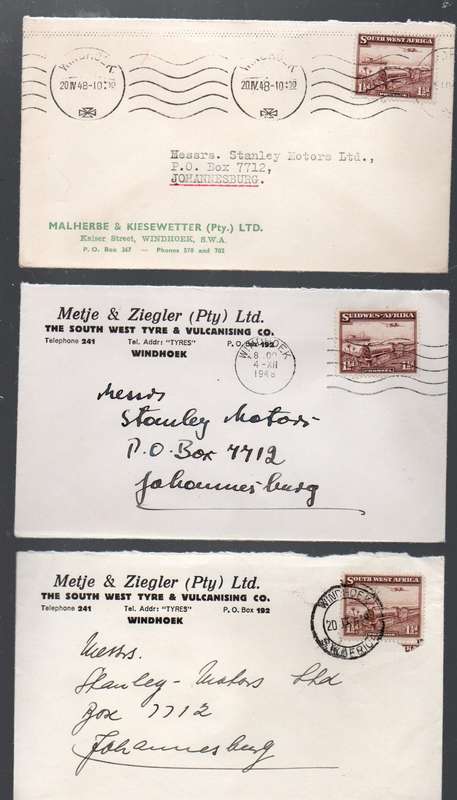 WINDHOEK
20 IV 48-10:00
WINDHOEK
20 IV 48-10:00
SOUTH WEST AFRICA
1½d
Messrs. Stanley Motors Ltd.,
P.O. Box 7712,
JOHANNESBURG.
MALHERBE & KIESEWETTER (Pty.) LTD.
Kaiser Street, WINDHOEK, S.W.A.
P. O. Box 367 — Phones 578 and 702
Metje & Ziegler (Pty) Ltd.
THE SOUTH WEST TYRE & VULCANISING CO.
Telephone 241 Tel. Addr: "TYRES" P. O. Box 192
WINDHOEK
WINDHOEK
4-XII
1948
SUIDWES-AFRIKA
1½d
Messrs
Stanley Motors
P.O. Box 7712
Johannesburg
Metje & Ziegler (Pty) Ltd.
THE SOUTH WEST TYRE & VULCANISING CO.
Telephone 241 Tel. Addr: "TYRES" P. O. Box 192
WINDHOEK
WINDHOEK
S.W.AFRICA
SOUTH WEST AFRICA
1½d
Messrs.
Stanley-Motors Ltd
Box 7712
Johannesburg